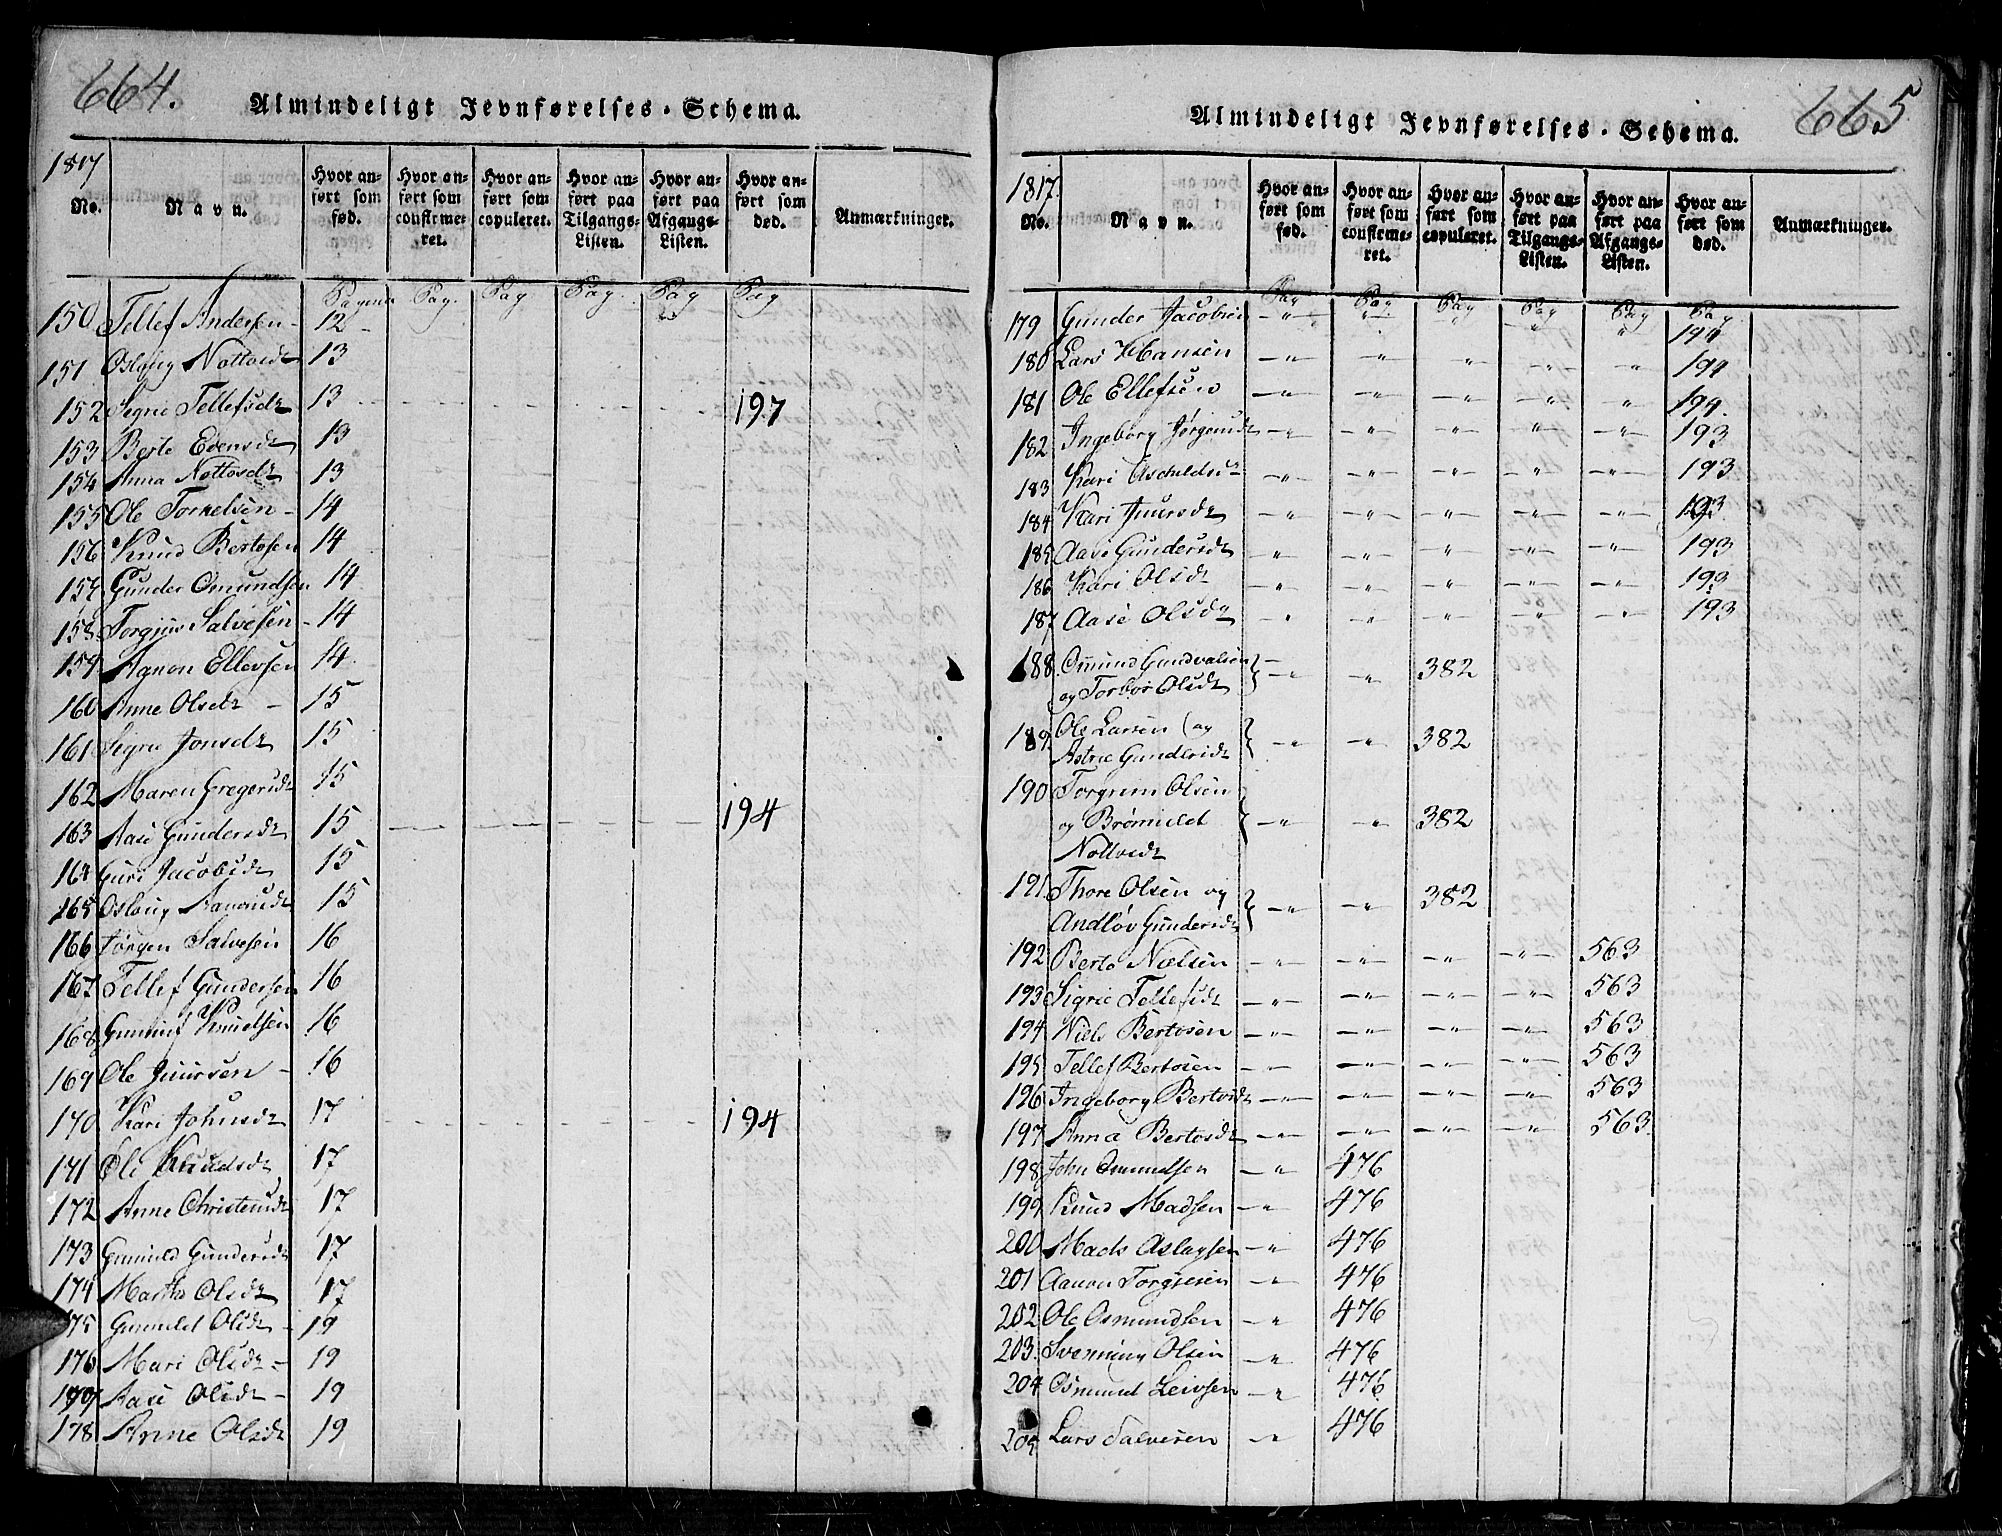 664.
Almindeligt Jevnførelses-Schema.
1817
No.
Navn.
Hvor anført som fød.
Hvor anført som confirmeret.
Hvor anført som copuleret.
Hvor anført paa Tilgangs-Listen.
Hvor anført paa Afgangs-Listen.
Hvor anført som død.
Anmærkninger.
Pagina Pag. Pag Pag. Pag Pag
150 Tellef Andersen - 12 -
151 Oslaug Nottosdr 13
152 Segrie Tellefsdr 13 197
153 Berte Evensdr 13
154 Anna Nottosdr 13
155 Ole Torkelsen - 14
156 Knud Bertosen 14
157 Gunder Omundsen 14
158 Torgjus Salvesen - 14
159 Aanon Ellevsen 14
160 Anne Olsdr - 15
161 Segrie Jonsdr 15
162 Maren Gregersdr 15
163 Aase Gundersdr 15 - - - - - 194
164 Guri Jacobsdr 15
165 Oslaug Aanonsdr 15
166 Jørgen Salvesen 16
167 Tellef Gundersen 16
168 Gunnuf Knudsen 16
169 Ole Juursen - 16
170 Kari Johnsdr 17 194
171 Ole Knudsdr 17
172 Anne Christensdr 17
173 Gunnild Gundersdr 17
174 Marthe Olsdr 17
175 Gunnild Olsdr - 19
176 Mari Olsdr - 19
177 Aase Olsdr - 19
178 Anne Olsdr 19
665
Almindeligt Jevnførelses-Schema.
1817.
No.
Navn.
Hvor anført som fød.
Hvor anført som confirmeret.
Hvor anført som copuleret.
Hvor anført paa Tilgangs-Listen.
Hvor anført paa Afgangs-Listen.
Hvor anført som død.
Anmærkninger.
Pag Pag Pag Pag Pag Pag
179 Gunder Jacobsen -"- " " " " 194
180 Lars Hansen -"- " " -"- " 194
181 Ole Ellefsen -"- -"- -"- -"- " 194.
182 Ingeborg Jørgensdr -"- -"- -"- -"- -"- 193
183 Kari Aschildsdr -"- -"- -"- -"- -"- 193
184 Kari Juursdr -"- -"- -"- -"- -"- 193
185 Aase Gundersdr -"- -"- -"- -"- -"- 193
186 Kari Olsdr -"- -"- -"- -"- -"- 193
187 Aase Olsdr -"- -"- -"- -"- -"- 193
188 Omund Gundvalsen
og Torbor Olsdr } -"- -"- 382
189 Ole Larsen (og
Astrie Gundersdr } -"- -"- 382
190 Torgrim Olsen
og Brømild } -"- -"- 382
Nottosdr
191 Thore Olsen og
Andløv Gundersdr } -"- -"- 382
192 Berte Nielsen -"- -"- -"- -"- 563
193 Sigrie Tellefsdr -"- -"- -"- -"- 563
194 Niels Bertosen -"- -"- -"- -"- 563
195 Tellef Bertosen -"- -"- -"- -"- 563
196 Ingeborg Bertosdr -"- -"- -"- -"- 563
197 Anna Bertosdr -"- -"- -"- -"- 563.
198 John Omundsen -"- 476
199 Knud Madsen -"- 476
200 Mads Aslagsen -"- 476
201 Aanon Torgjesen -"- 476
202 Ole Osmundsen -"- 476
203. Svenning Olsen -"- 476
204 Osmund Leivsen -"- 476
205 Lars Salvesen -"- 476